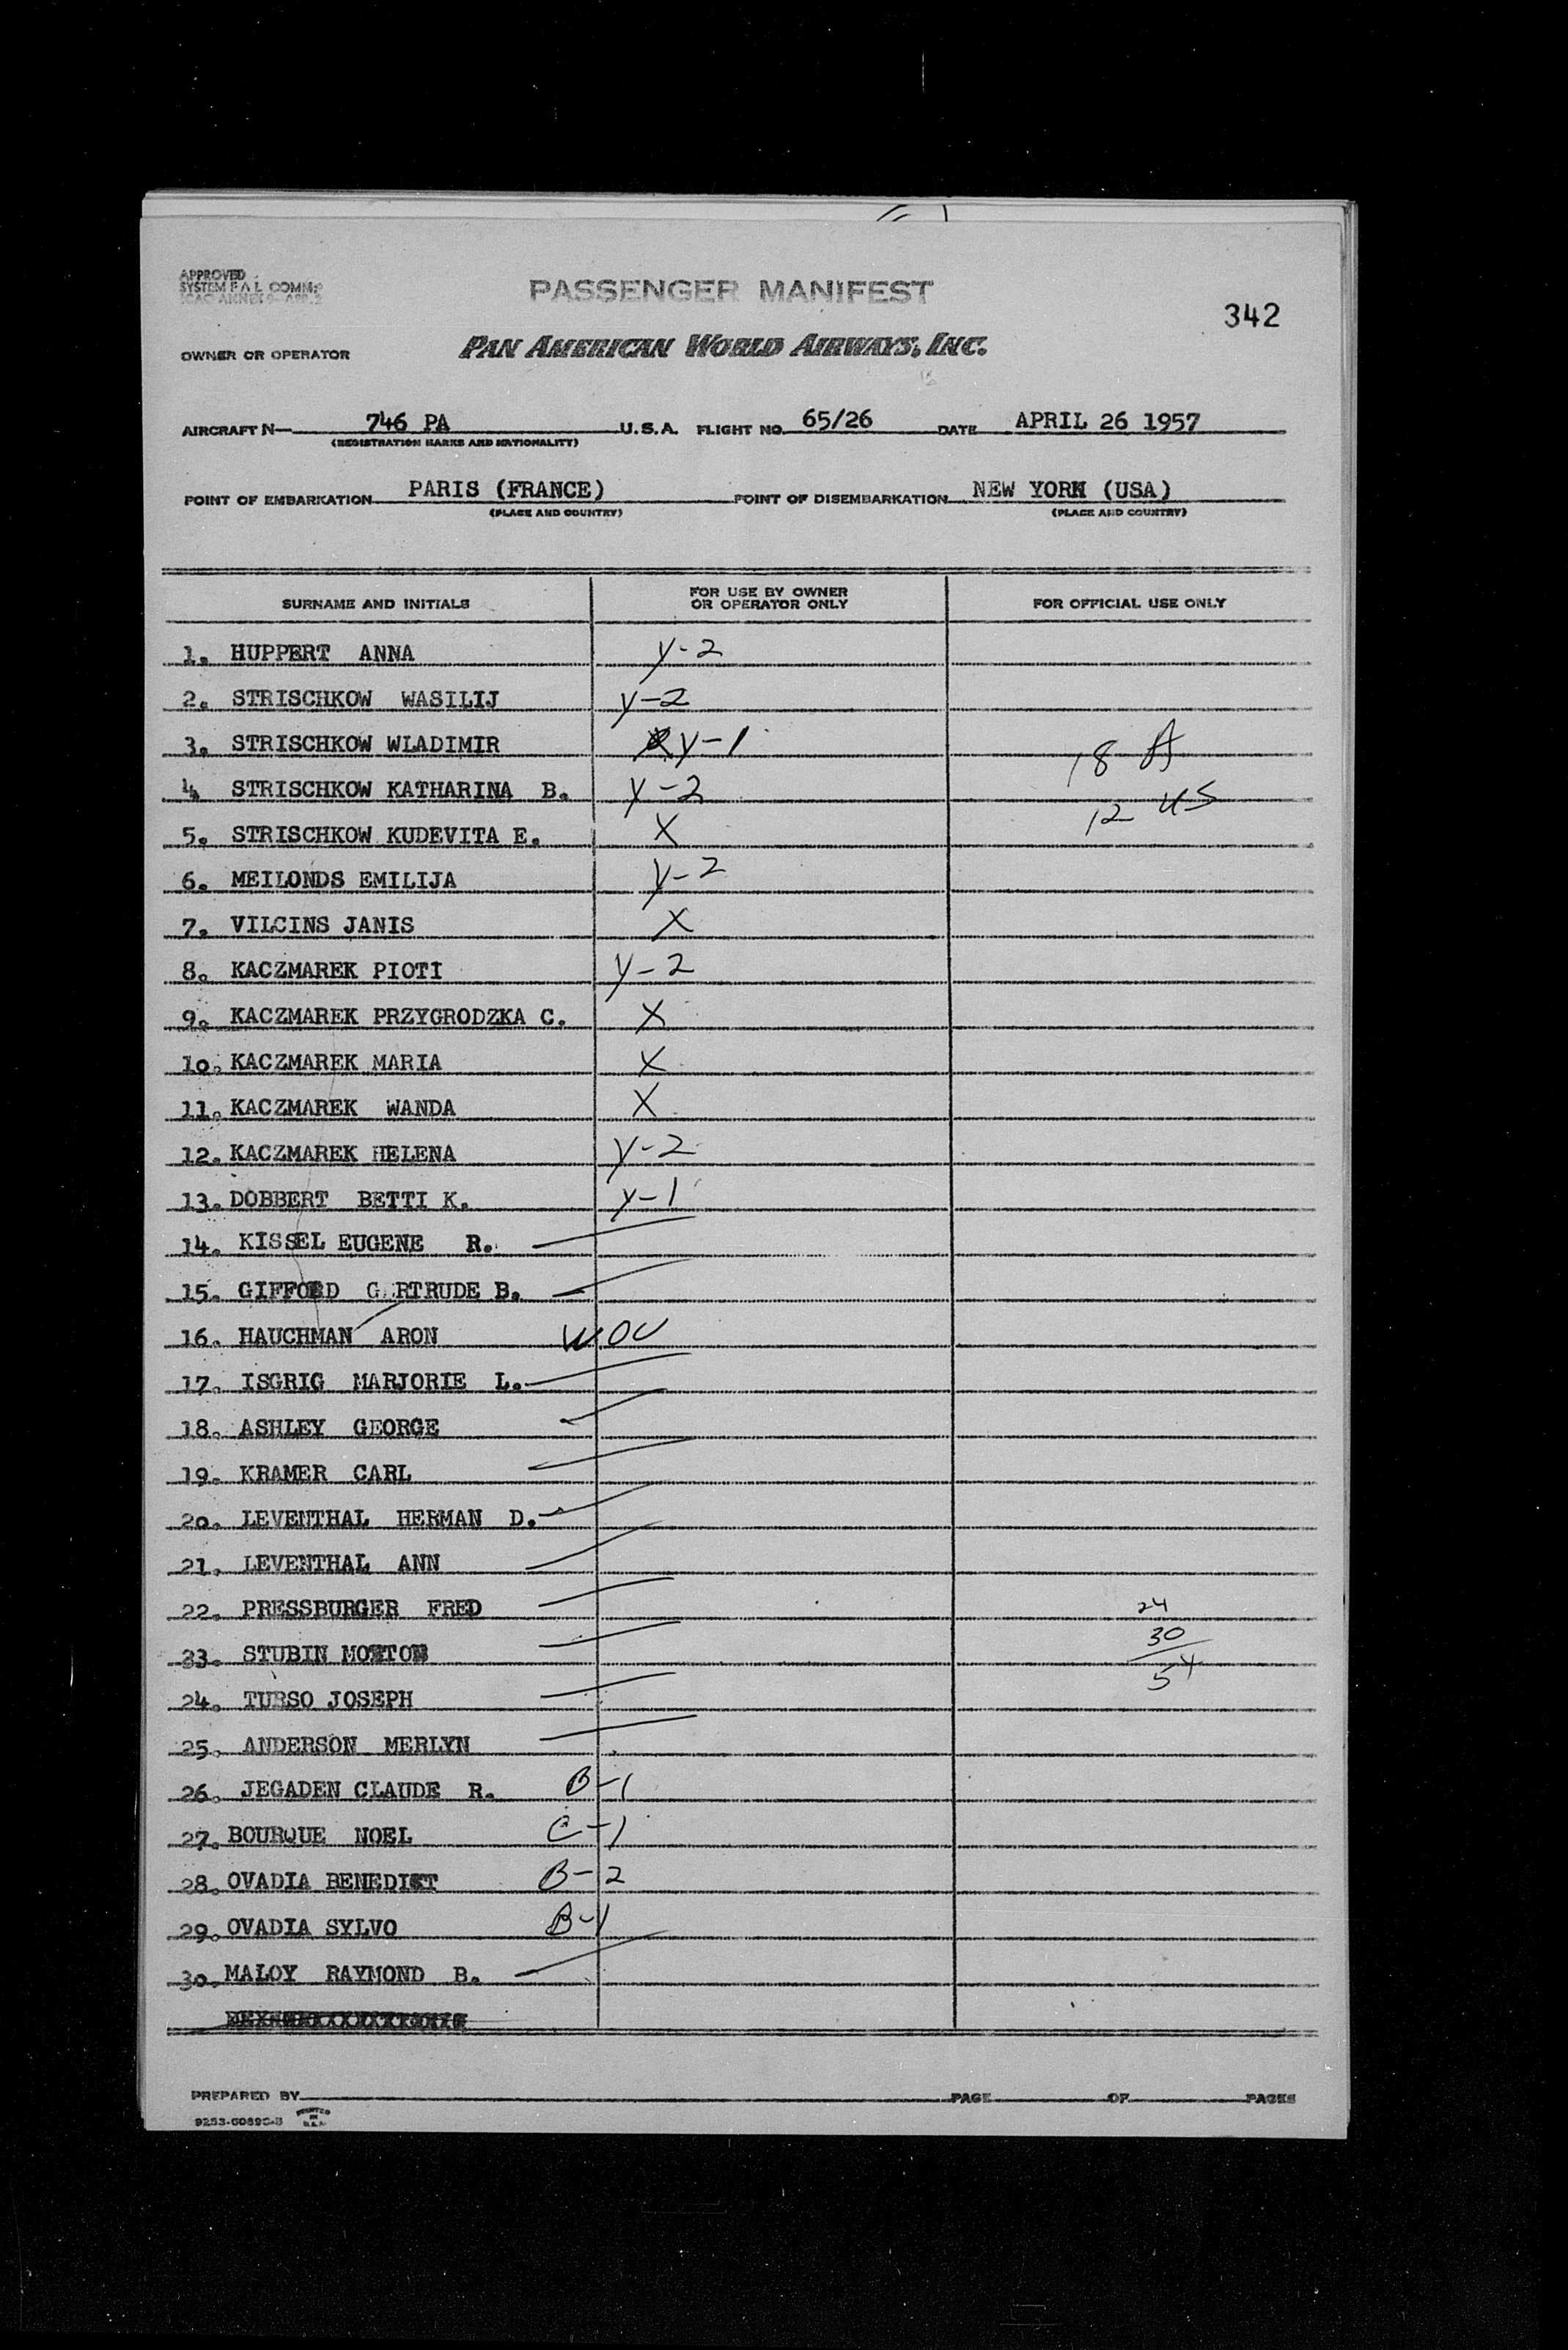 APPROVED
SYSTEM F A L COMM:
ICAO ANNEX 9- APP.2
PASSENGER MANIFEST
342
OWNER OR OPERATOR PAN AMERICAN WORLD AIRWAYS, INC.
AIRCRAFT N— 746 PA U.S.A. FLIGHT NO. 65/26 DATE APRIL 26 1957
(REGISTRATION MARKS AND NATIONALITY)
POINT OF EMBARKATION PARIS (FRANCE) POINT OF DISEMBARKATION NEW YORK (USA)
(PLACE AND COUNTRY) (PLACE AND COUNTRY)
SURNAME AND INITIALS FOR USE BY OWNER OR OPERATOR ONLY FOR OFFICIAL USE ONLY
1. HUPPERT ANNA y-2
2. STRISCHKOW WASILIJ y-2
3. STRISCHKOW WLADIMIR y-1
18 A
4. STRISCHKOW KATHARINA B. y-2
12 US
5. STRISCHKOW KUDEVITA E. X
6. MEILONDS EMILIJA y-2
7. VILCINS JANIS X
8. KACZMAREK PIOTI y-2
9. KACZMAREK PRZYGRODZKA C. X
10. KACZMAREK MARIA X
11. KACZMAREK WANDA X
12. KACZMAREK HELENA y-2
13. DOBBERT BETTI K. y-1
14. KISSEL EUGENE R.
15. GIFFORD GERTRUDE B.
16. HAUCHMAN ARON
17. ISGRIG MARJORIE L.
18. ASHLEY GEORGE
19. KRAMER CARL
20. LEVENTHAL HERMAN D.
21. LEVENTHAL ANN
22. PRESSBURGER FRED 24
30
23. STUBIN MORTON
54
24. TURSO JOSEPH
25. ANDERSON MERLYN
26. JEGADEN CLAUDE R. B-1
27. BOURQUE NOEL C-1
28. OVADIA BENEDICT B-2
29. OVADIA SYLVO B-1
30. MALOY RAYMOND B.
PREPARED BY PAGE OF PAGES
PRINTED IN U.S.A.